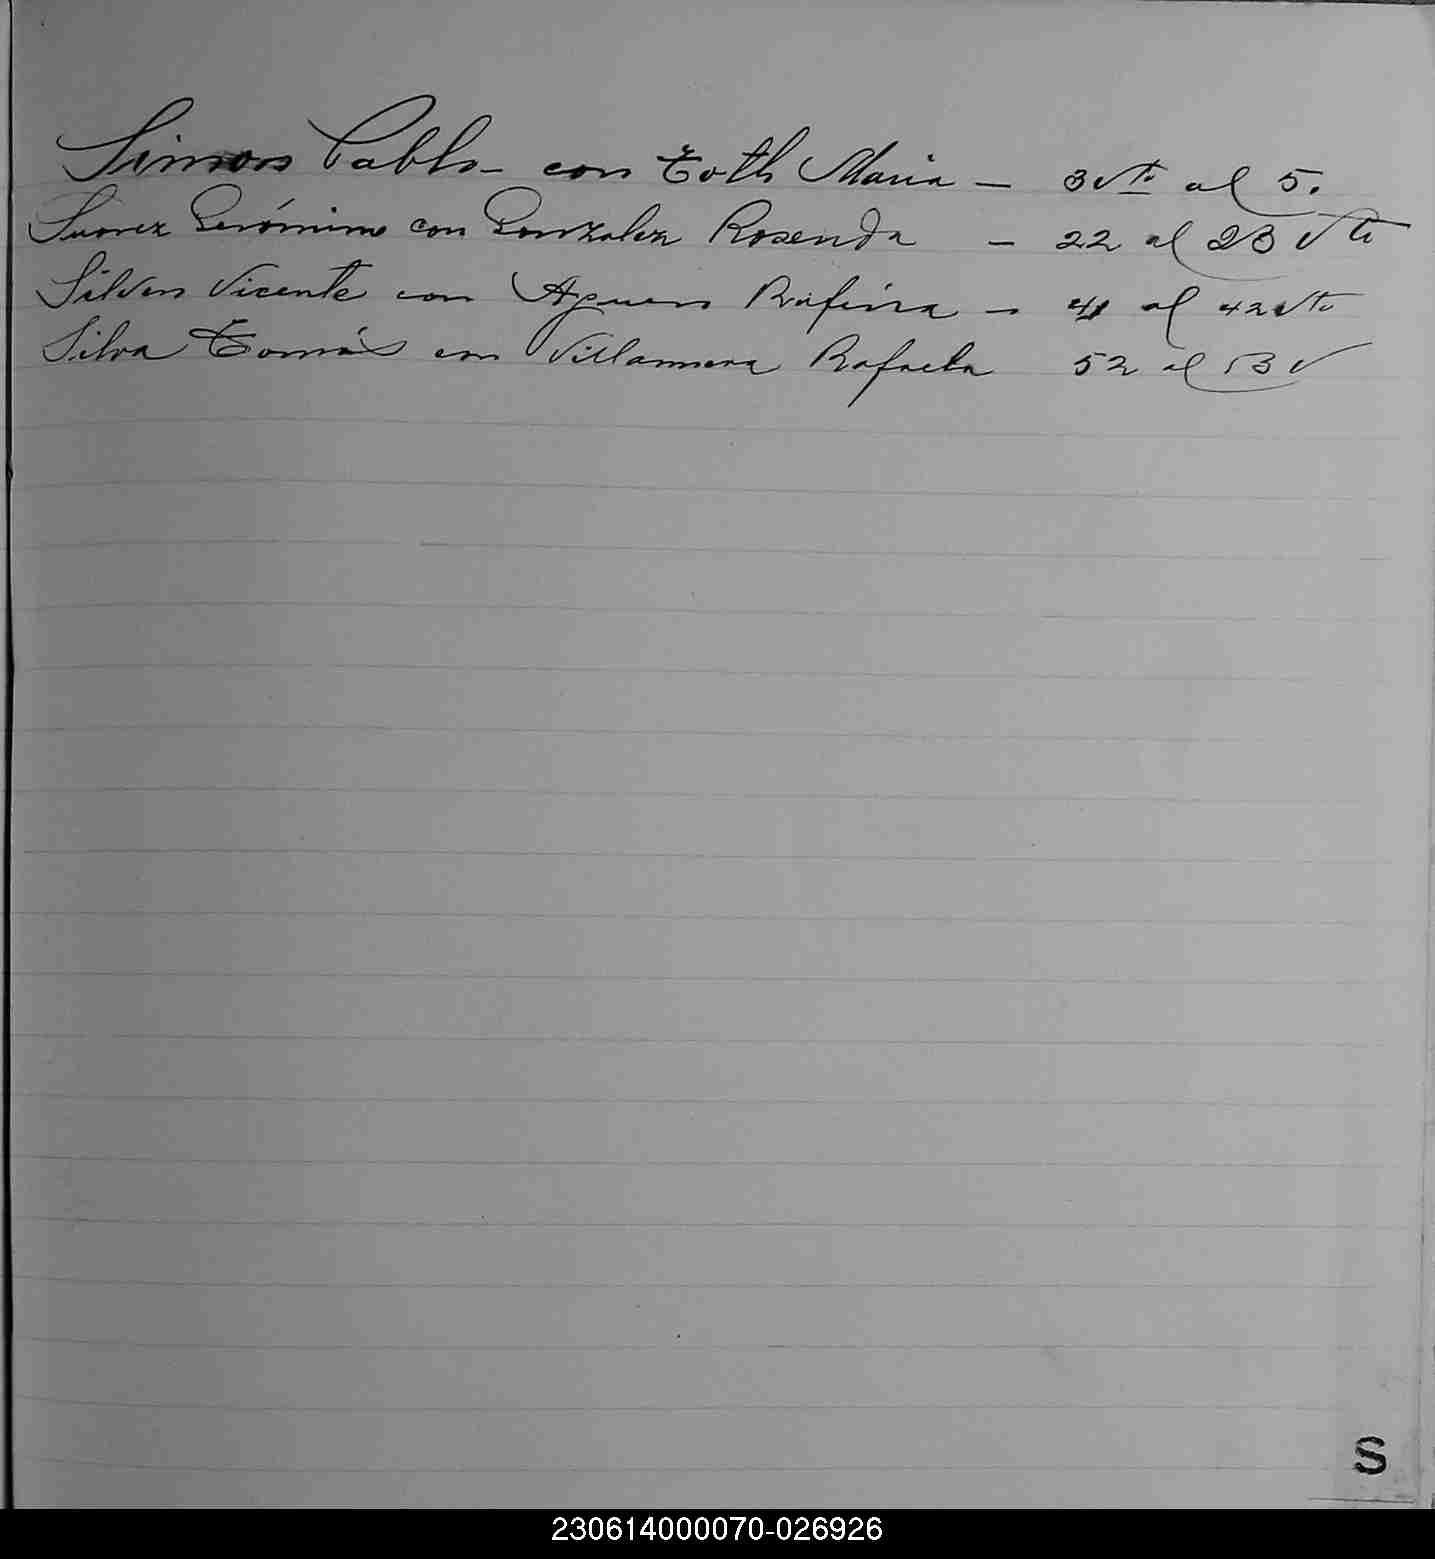 Simon Pablo - con Toth Maria - 3 vto al 5.
Suarez Gerónimo con Gonzalez Rosenda - 22 al 23 vto
Silven Vicente con Rufina - 41 al 42 vto
Silva Tomás con Villanueva Rafaela 52 al 53 v
S
230614000070-026926